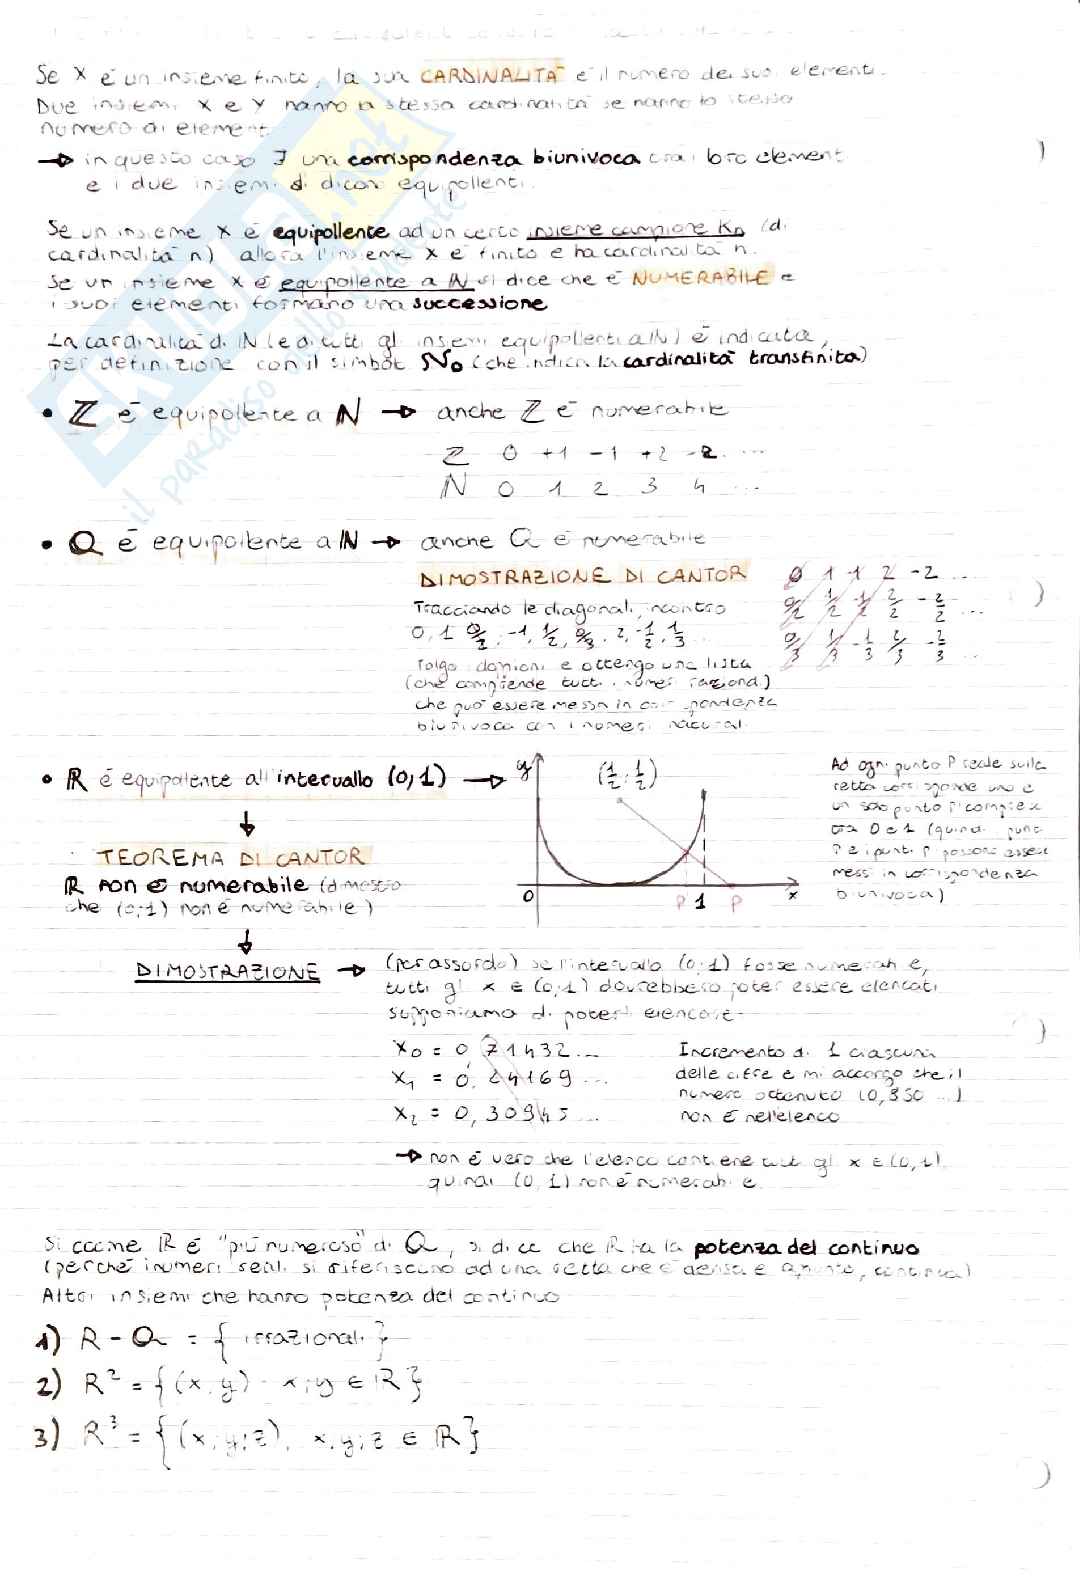 Se X è un insieme finito, la sua CARDINALITÀ è il numero dei suoi elementi.
Due insiemi X e Y hanno la stessa cardinalità se hanno lo stesso
numero di elementi
→ in questo caso ∃ una corrispondenza biunivoca tra i loro elementi
e i due insiemi si dicono equipollenti.
Se un insieme X è equipollente ad un certo insieme campione Kn (di
cardinalità n) allora l'insieme X è finito e ha cardinalità n.
Se un insieme X è equipollente a ℕ si dice che è NUMERABILE e
i suoi elementi formano una successione
La cardinalità di ℕ (e di tutti gli insiemi equipollenti a ℕ) è indicata,
per definizione con il simbolo ℵ0 (che indica la cardinalità transfinita)
• ℤ è equipollente a ℕ → anche ℤ è numerabile
ℤ 0 +1 -1 +2 -2 ...
ℕ 0 1 2 3 4 ...
• Q è equipollente a ℕ → anche Q è numerabile
DIMOSTRAZIONE DI CANTOR
0 1 -1 2 -2 ...
0/2 1/2 -1/2 2/2 -2/2 ...
0/3 1/3 -1/3 2/3 -2/3 ...
Tracciando le diagonali, incontro
0, 1, 0/2, -1, 1/2, 0/3, 2, -1/2, 1/3 ...
Tolgo i doppioni e ottengo una lista
(che comprende tutti i numeri razionali)
che può essere messa in corrispondenza
biunivoca con i numeri naturali
• ℝ è equipollente all'intervallo (0;1) →
y (1/2; 1/2)
0 P 1 P x
Ad ogni punto P reale sulla
retta corrisponde uno e
un solo punto P' compreso
tra 0 e 1 (quindi i punti
P e i punti P possono essere
messi in corrispondenza
biunivoca)
TEOREMA DI CANTOR
ℝ non è numerabile (dimostro
che (0;1) non è numerabile)
DIMOSTRAZIONE → (per assurdo) se l'intervallo (0;1) fosse numerabile,
tutti gli x ∈ (0;1) dovrebbero poter essere elencati
supponiamo di poterli elencare
x0 = 0,71432...
x1 = 0,24169...
x2 = 0,30945...
Incremento di 1 ciascuna
delle cifre e mi accorgo che il
numero ottenuto (0,850 ...)
non è nell'elenco
→ non è vero che l'elenco contiene tutti gli x ∈ (0,1)
quindi (0,1) non è numerabile
Siccome ℝ è "più numeroso" di Q, si dice che ℝ ha la potenza del continuo
(perché i numeri reali si riferiscono ad una retta che è densa e appunto, continua)
Altri insiemi che hanno potenza del continuo
1) R - Q = { irrazionali }
2) R² = {(x;y) . x;y ∈ ℝ}
3) R³ = {(x;y;z), x;y;z ∈ ℝ}
SKUOLA.net
il paradiso dello studente